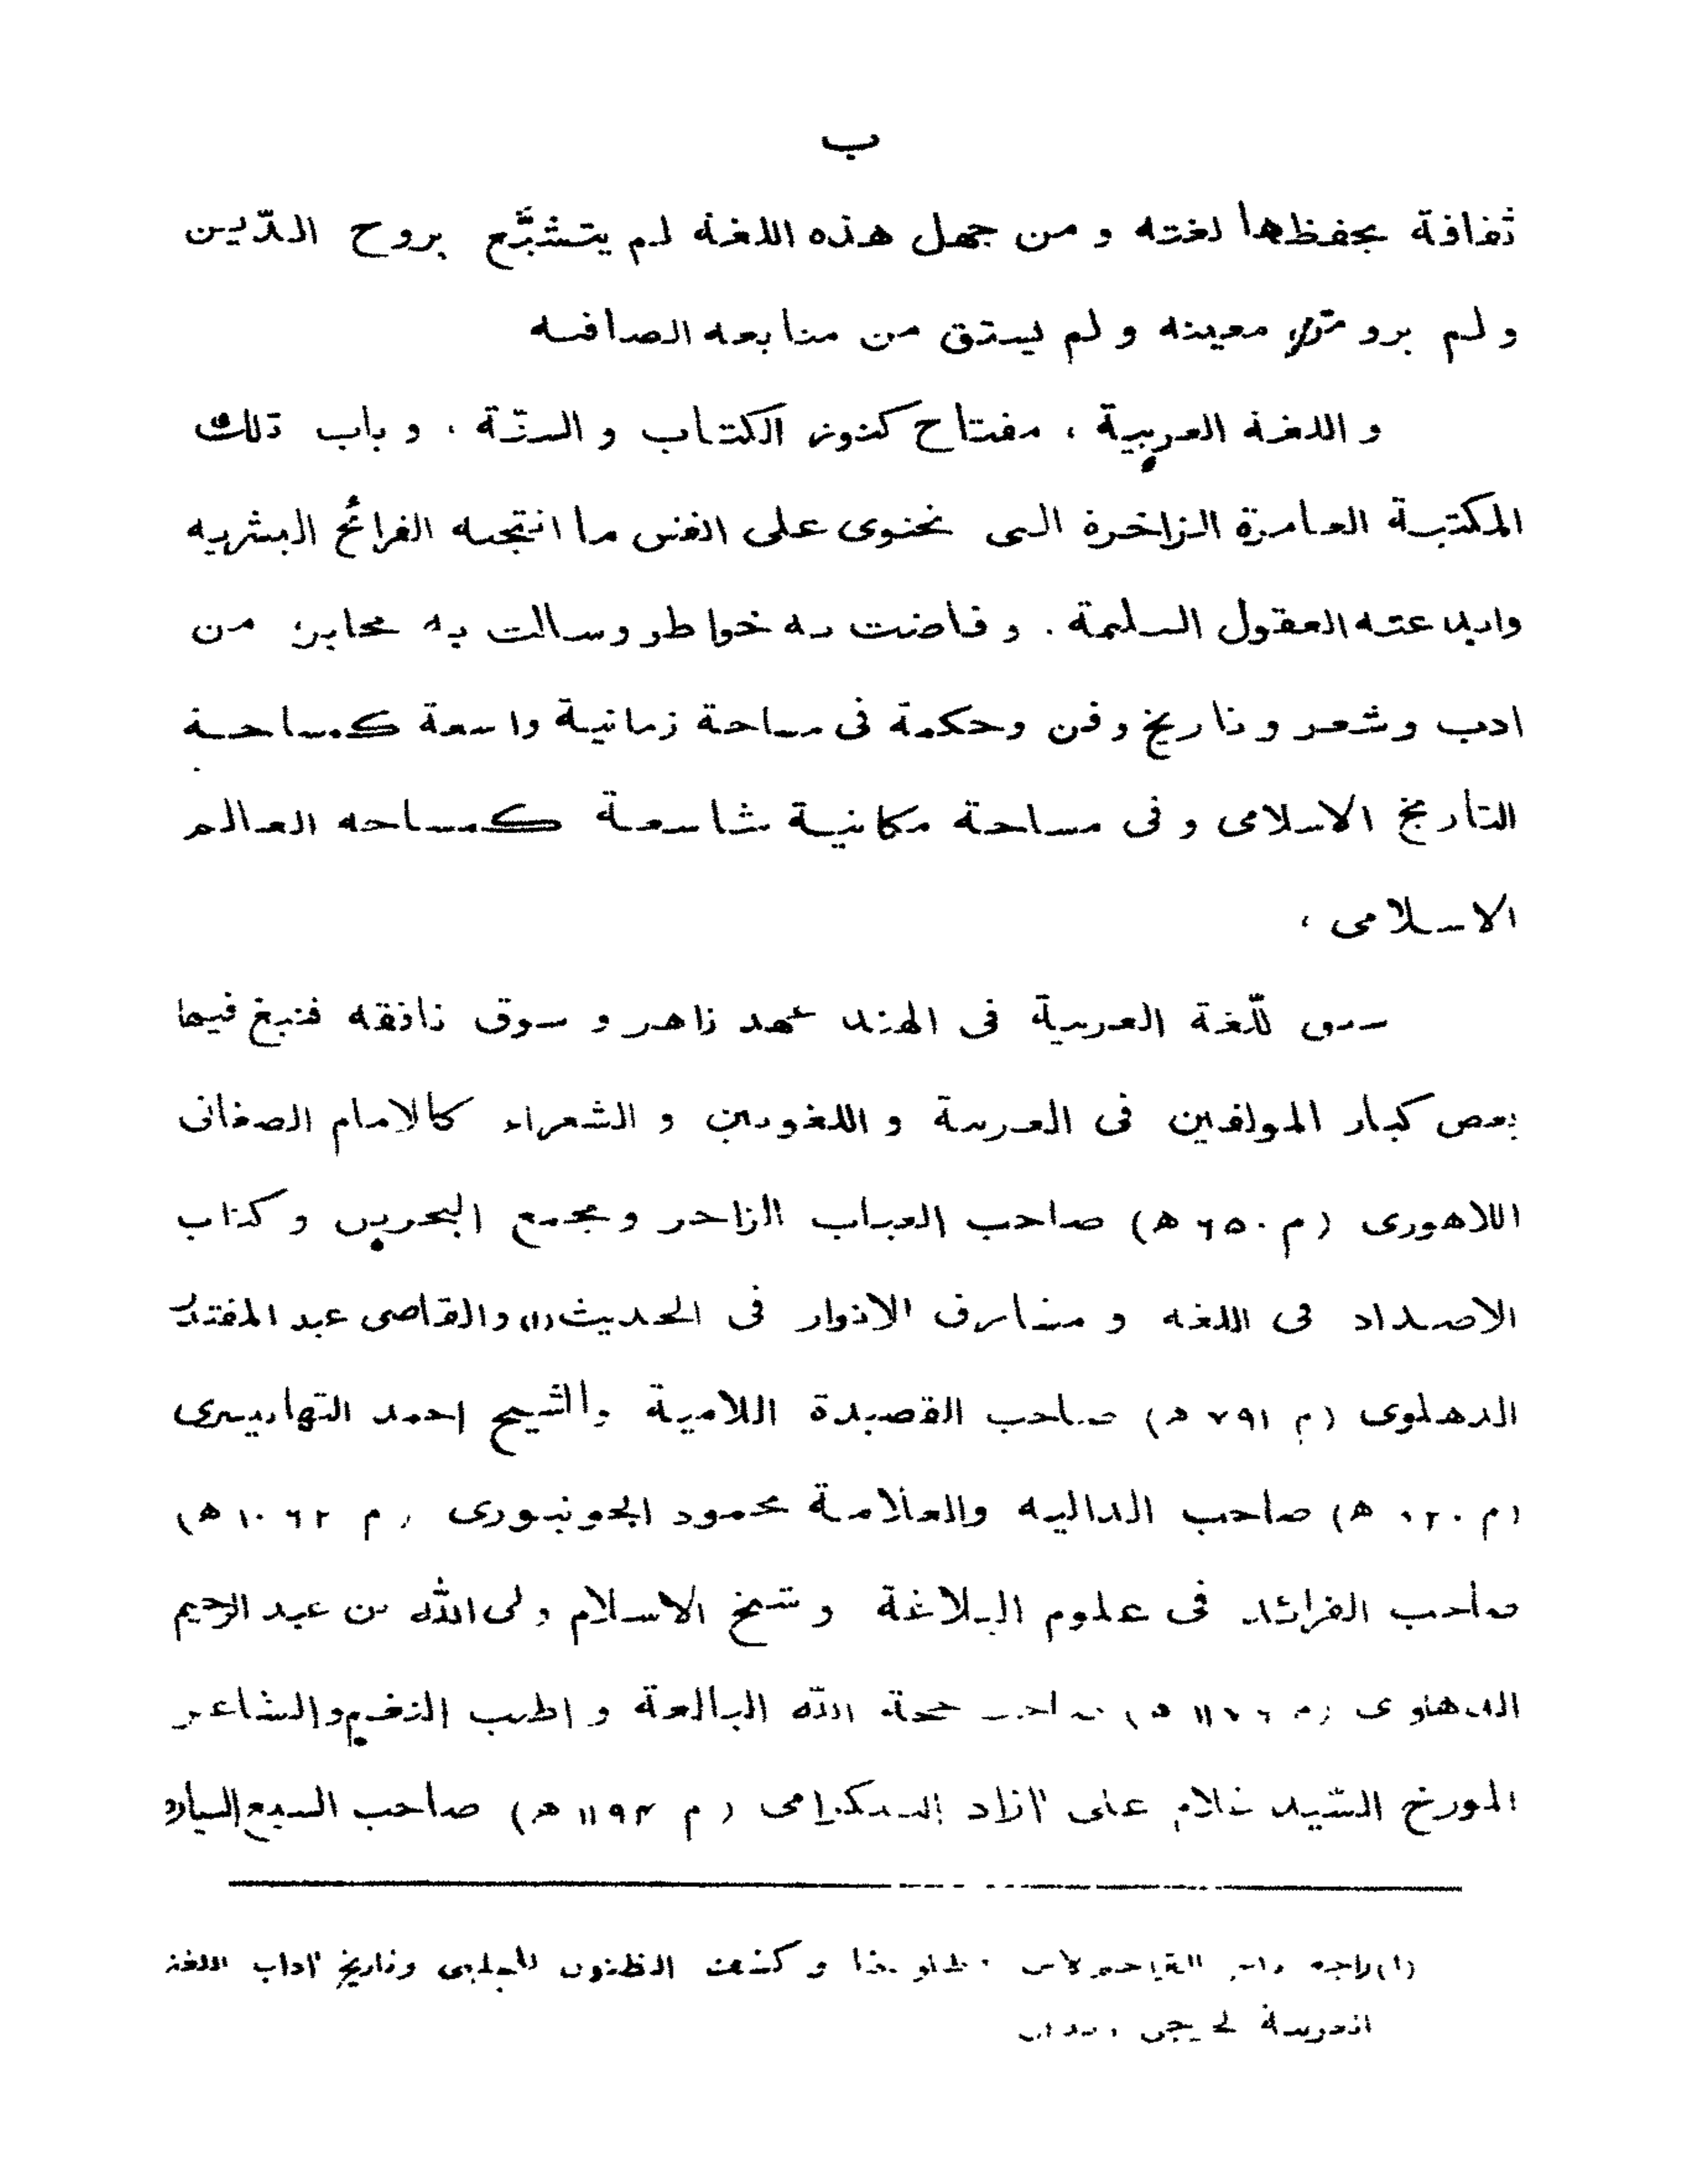 ب
ثقافة بحفظها لغته و من جهل هذه اللغة لم يتشبّع بروح الدّين
و لم يرو من معينه و لم يستق من منابعه الصافية
و اللغة العربية ، مفتاح كنوز الكتاب و السنّة ، و باب تلك
المكتبة العامرة الزاخرة التى تحتوى على انفس ما انتجته القرائح البشرية
وابدعته العقول السليمة . و فاضت به خواطر وسالت به محابر، من
ادب و شعر و تاريخ و فن وحكمة فى مساحة زمانية واسعة كمساحة
التاريخ الاسلامى و فى مساحة مكانية شاسعة كمساحة العالم
الاسلامى ،
سبق للّغة العربية فى الهند عهد زاهر و سوق نافقة فنبغ فيها
بعض كبار المولفين فى العربية و اللغويين و الشعراء كالامام الصغانى
اللاهورى (م ٦٥٠ ه) صاحب العباب الزاخر و مجمع البحرين و كتاب
الاضداد فى اللغة و مشارق الانوار فى الحديث(١) والقاضى عبد المقتدر
الدهلوى (م ٧٩١ ه) صاحب القصيدة اللامية والشيخ احمد التهانيسرى
(م ٨٢٠ ه) صاحب الدالية والعلامة محمود الجونبورى (م ١٠٦٢ ه)
صاحب الفرائد فى علوم البلاغة و شيخ الاسلام ولى الله بن عبد الرحيم
الدهلوى (م ١١٧٦ ه) صاحب حجة الله البالغة و اطيب النغم والشاعر
المورخ السّيد غلام على آزاد البلكرامى (م ١١٩٤ ه) صاحب السبع السيارة
(١) راجع و كشف الظنون للجلبى وتاريخ آداب اللغة
العربية لجرجى زيدان